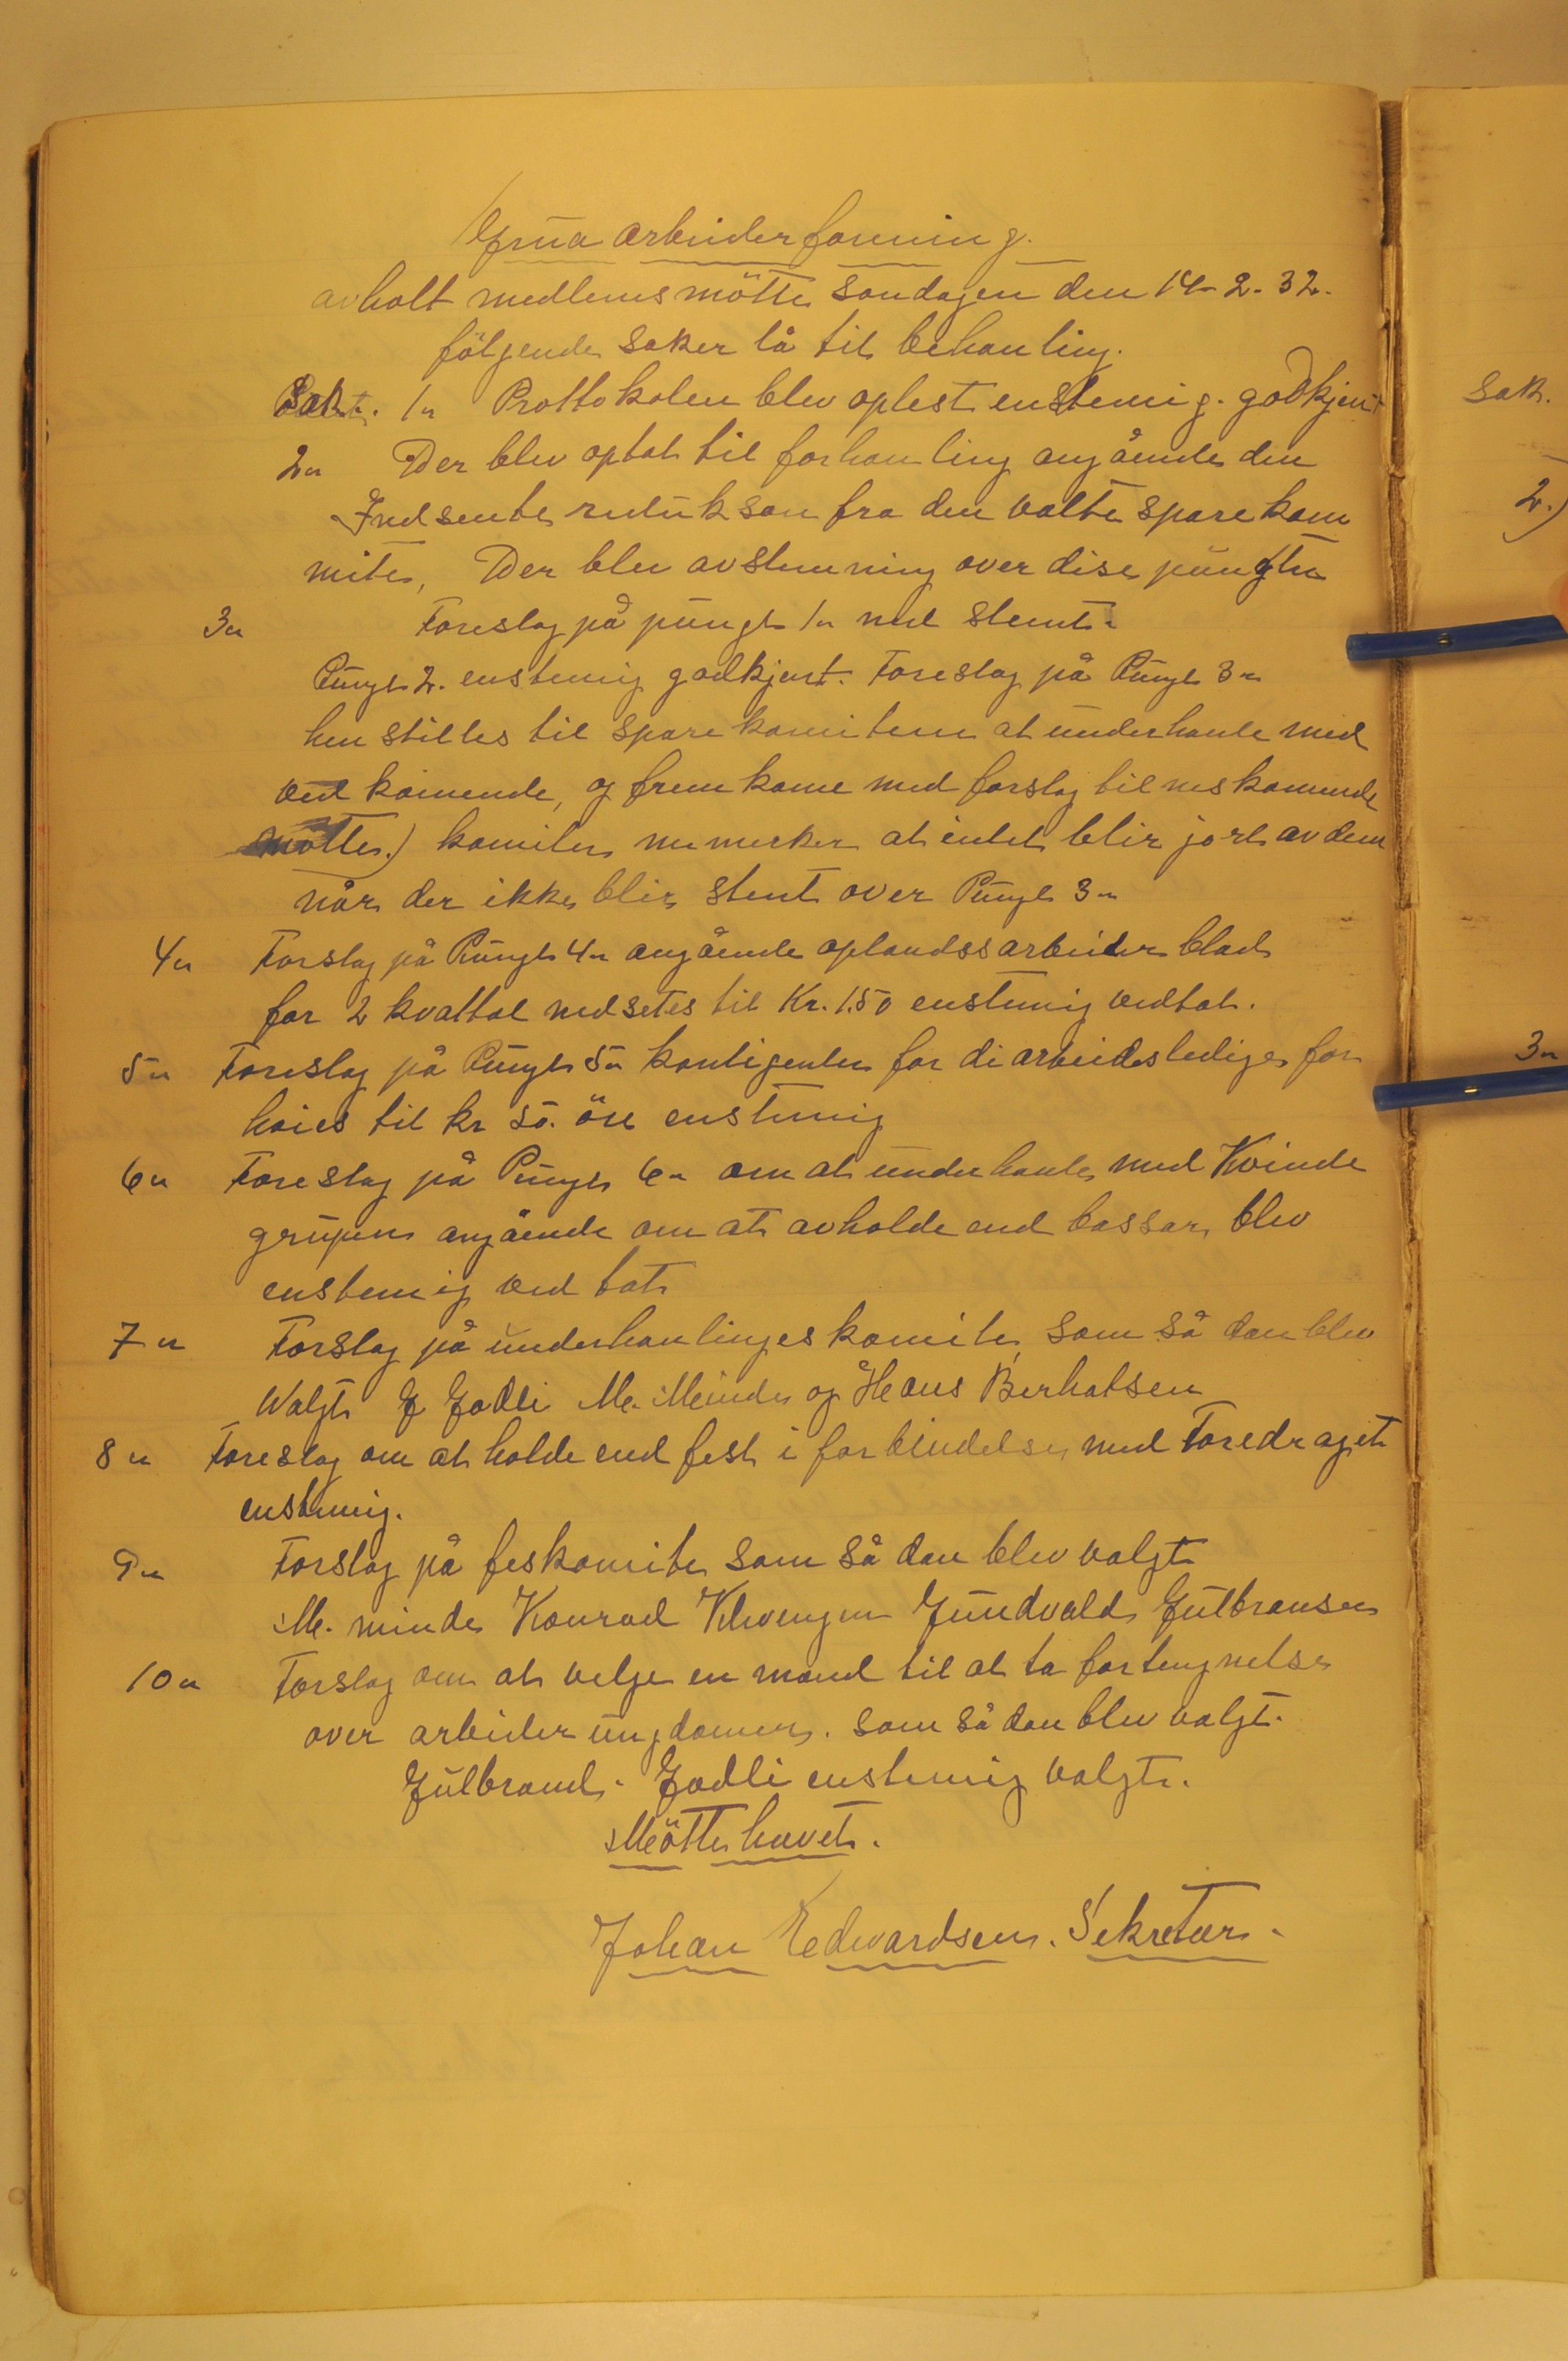 Grua arbeiderforening.
avholt medlemsmötte söndagen den 14-2-32.
fölgende saker lå til behanling.
Sak. 1" Prottokolen blev oplest enstemig. godkjent
2" Der blev optat til forhanling angående den
Indsente redukson fra den valte sparekom
mite, Der blev avstemning over dise pungter
3" Foreslag på pungt 1" ned stemt.
Pungt 2. enstemig godkjent. Foreslag på Pungt 3"
hen stilles til sparekomiteen at underhanle med
ved komende, og fremkome med forslag til neskomende
mötte.) komiteen me merker at intet blir jort av dem
når der ikke blir stemt over Pungt 3"
4" Forslag på Pungt 4" angående oplandssarbeider blad
for 2 kvattal nedsetes til Kr. 1.50 enstemig vedtat.
5" Foreslag på Pungt 5" kontigenten for di arbeidsledige for
höies til kr 50. öre enstemig
6" Foreslag på Pungt 6" om at underhanle med Kvinde
grupen angående om at avholde end bassar, blev
enstemig ved tat
7" Forslag på underhanlingeskomite, som så dan blev
Valgt G Godli M. Minde og Hans Berhatsen
8" Foreslag om at holde end fest i forbindelse med Foredraget
enstemig.
9" Forslag på feskomite som så dan blev valgt
M. minde Konrad Klevengen Gundvald Gulbransen
10" Forslag om at velge en mand til at ta fortengnelse
over arbeider ungdomen. som så dan blev valgt.
Gulbrand. Godli enstemig valgt.
Mötte hevet.
Johan Edwardsen. Sekretær.
Sak.
2.)
3"